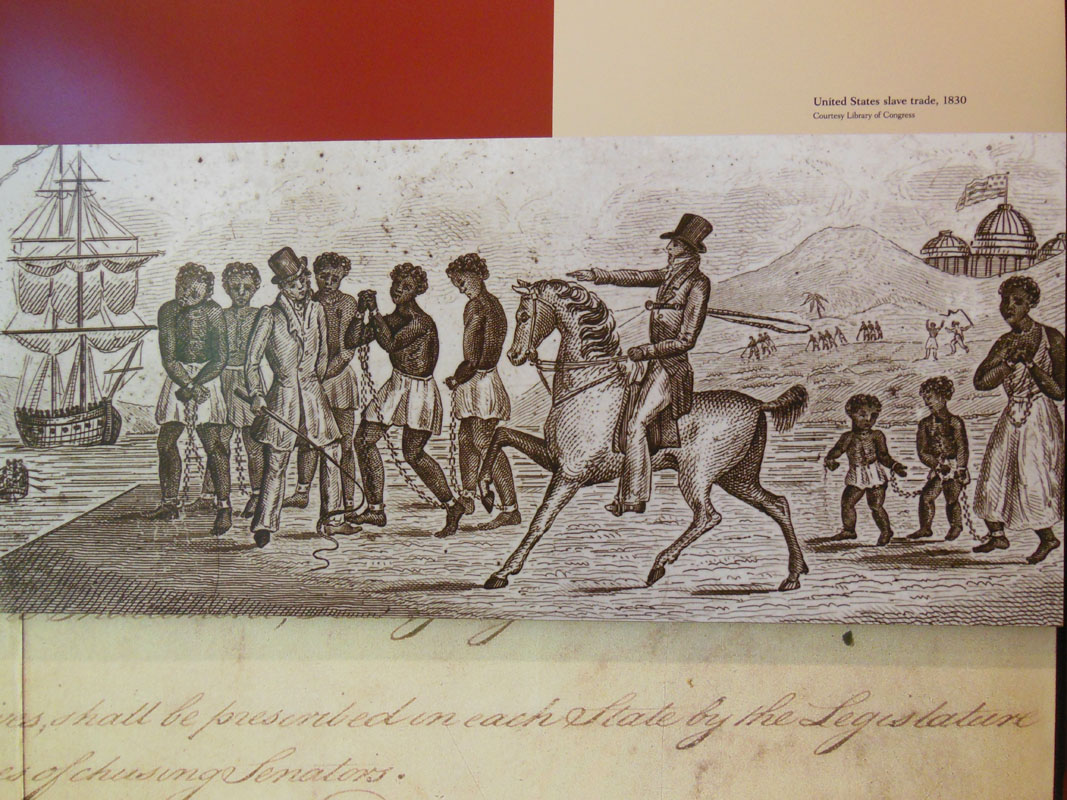 United States slave trade, 1830
Courtesy Library of Congress
shall be prescribed in each State by the Legislature
of chusing Senators.